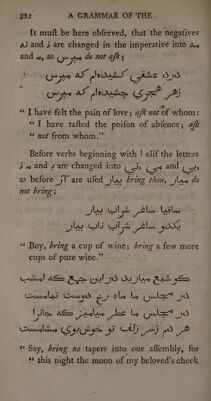 232 A GRAMMAR OF THE
It muſt be here obſerved, that the negatives
نه and ن are changed in the imperative into مه
and م, as مپرس do not aſk;
درد عشقي کشیده‌ام که مپرس
زهر هجري چشیده‌ام که مپرس
“ I have felt the pain of love; aſk not of whom:
“ I have taſted the poiſon of abſence; aſk
“ not from whom.”
Before verbs beginning with ا elif the letters
and are changed into and
as before آ are uſed بیار bring thou, میار do
not bring;
ساقیا ساغر شراب بیار
یکدو ساغر شراب ناب بیار
“ Boy, bring a cup of wine; bring a few more
cups of pure wine.”
کو شمع میارید در این جمع که امشب
در مجلس ما ماه رخ دوست تمامست
در مجلس ما عطر میامیز که جانرا
هر دم ز سر زلف تو خوش‌بوی مشامست
“ Say, bring no tapers into our aſſembly, for
“ this night the moon of my beloved's cheek